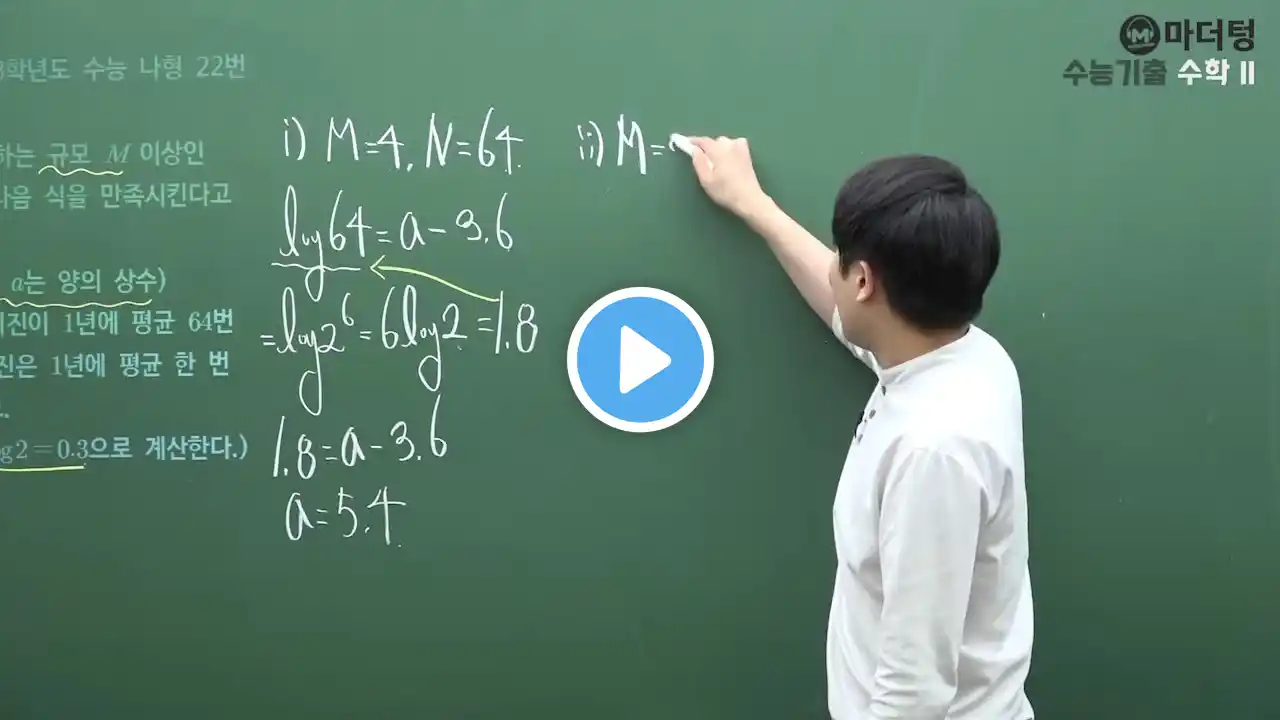 마더텅
수능기출 수학 II
학년도 수능 나형 22번
하는 규모 M 이상인
다음 식을 만족시킨다고
a는 양의 상수)
지진이 1년에 평균 64번
진은 1년에 평균 한 번
log2=0.3으로 계산한다.)
i) M=4, N=64
log64=a-3.6
=log2⁶=6log2=1.8
1.8=a-3.6
a=5.4
ii) M=